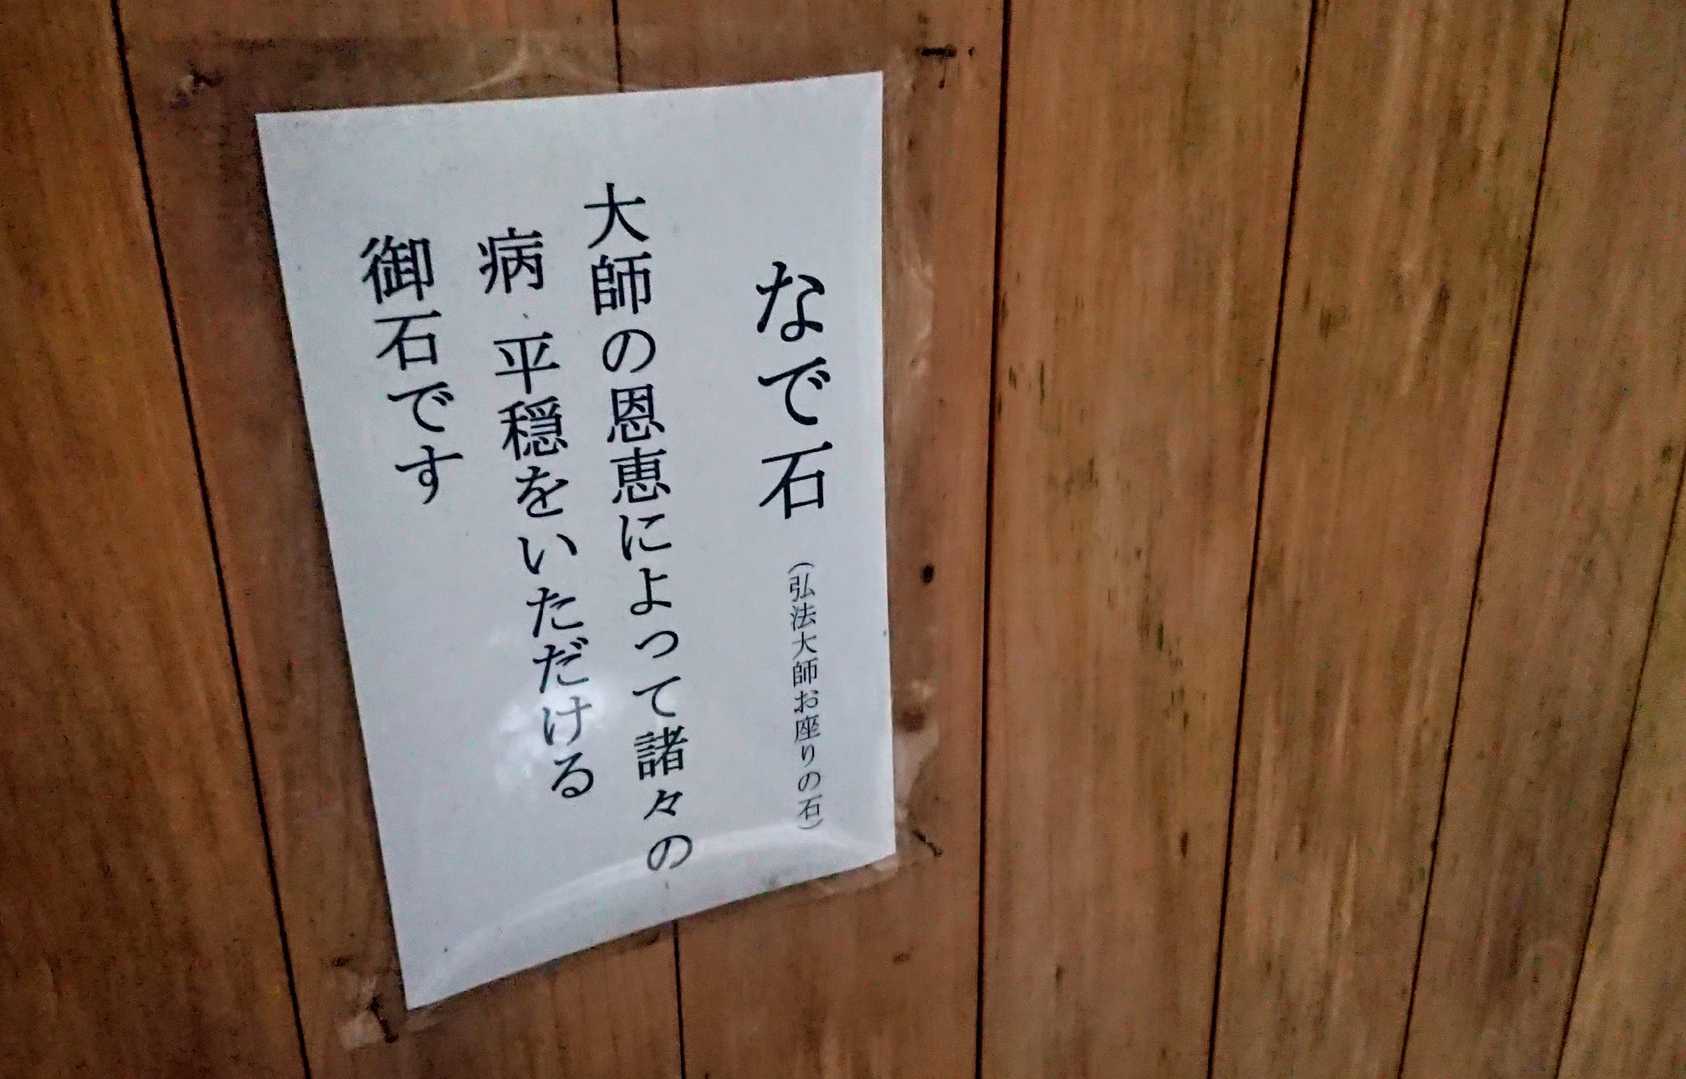 なで石 (弘法大師お座りの石)
大師の恩恵によって諸々の
病 平穏をいただける
御石です